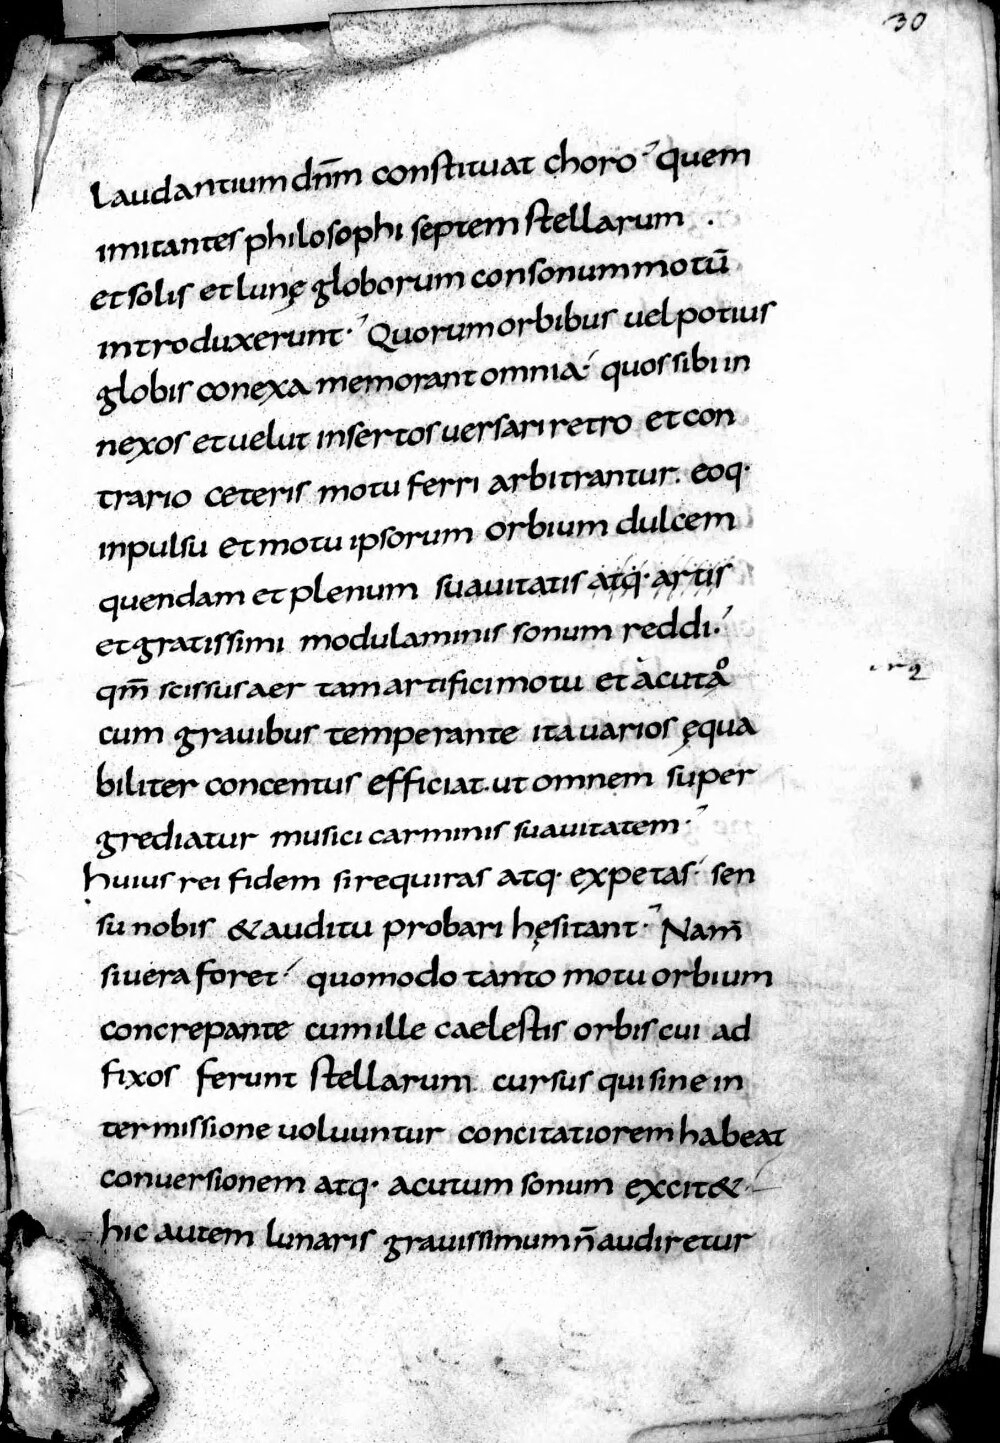 30
Laudantium dn̄m constituat choro quem
imitantes philosophi septem stellarum .
et solis et lunę globorum consonum motū
introduxerunt· Quorum orbibus uel potius
globis conexa memorant omnia· quos sibi in
nexos et uelut insertos uersari retro et con
trario ceteris motu ferri arbitrantur. eoq·
inpulsu et motu ipsorum orbium dulcem
quendam et plenum suauitatis atq· artis
et gratissimi modulaminis sonum reddi.
qm̄ scissus aer tam artifici motu et acuta
cum grauibus temperante ita uarios ęqua
biliter concentus efficiat. ut omnem super
grediatur musici carminis suauitatem·
huius rei fidem si requiras atq· expetas· sen
su nobis & auditu probari hęsitant· Nam̄
si uera foret quomodo tanto motu orbium
concrepante cum ille caelestis orbis cui ad
fixos ferunt stellarum cursus qui sine in
termissione uoluuntur concitatiorem habeat
conuersionem atq· acutum sonum excit&·
hic autem lunaris grauissimum n̄ audiretur